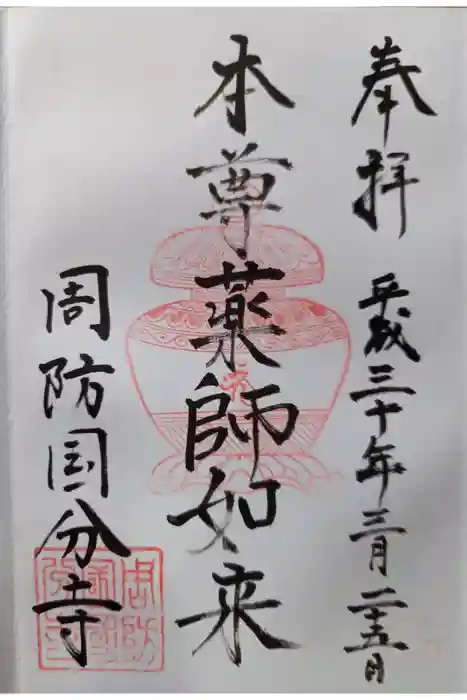 奉拝
平成三十年三月二十五日
本尊薬師如来
周防国分寺